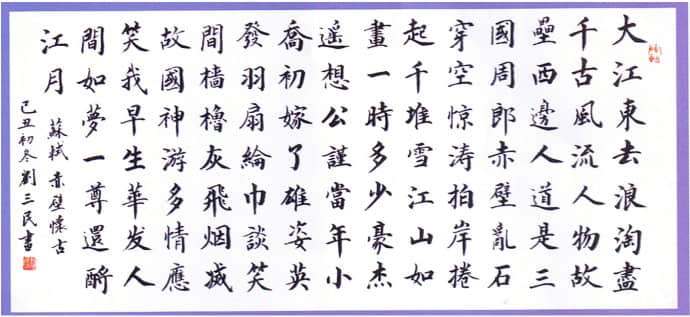 大江東去浪淘盡
千古風流人物故
壘西邊人道是三
國周郎赤壁亂石
穿空惊涛拍岸捲
起千堆雪江山如
畫一時多少豪杰
遥想公謹當年小
喬初嫁了雄姿英
發羽扇綸巾談笑
間檣櫓灰飛烟滅
故國神游多情應
笑我早生華发人
間如夢一尊還酹
江月
蘇軾赤壁懷古
己丑初冬劉三民書